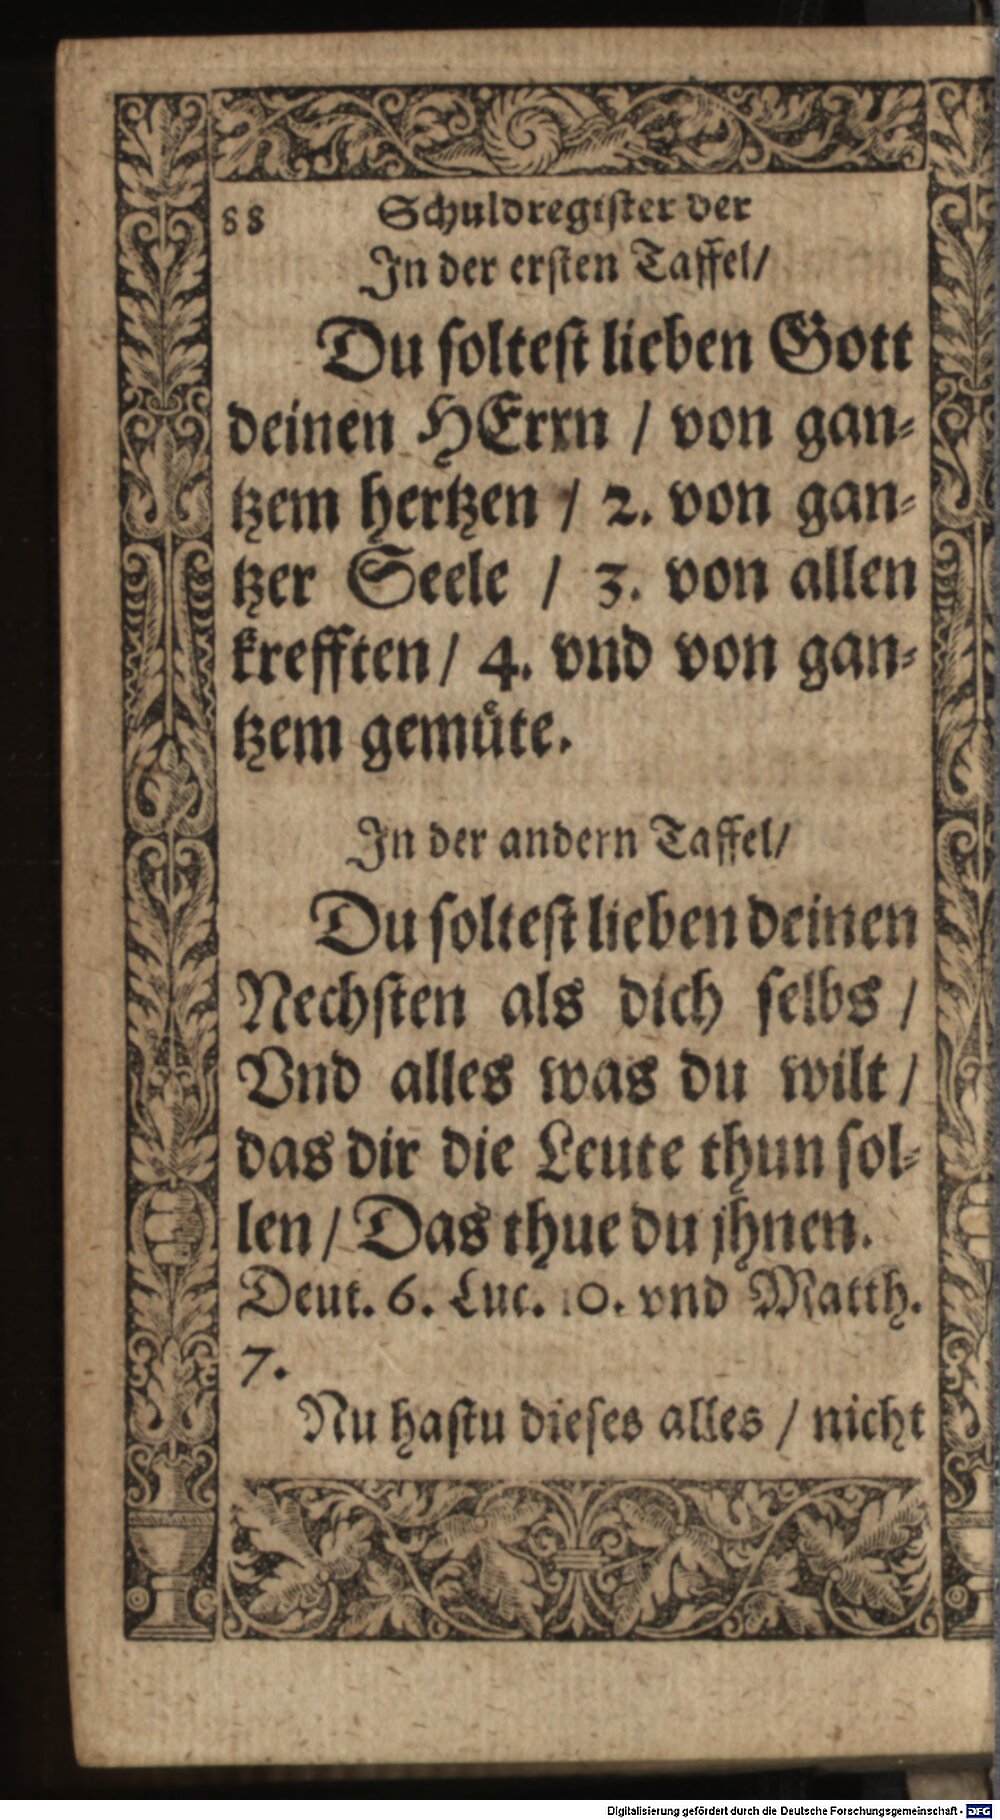 88 Schuldregister der
In der ersten Taffel/
Du soltest lieben Gott
deinen HErrn / von gan-
tzem hertzen / 2. von gan-
tzer Seele / 3. von allen
krefften / 4. vnd von gan-
tzem gemuͤte.
In der andern Taffel/
Du soltest lieben deinen
Nechsten als dich selbs /
Vnd alles was du wilt /
das dir die Leute thun sol-
len / Das thue du jhnen.
Deut. 6. Luc. 10. vnd Matth.
7.
Nu hastu dieses alles / nicht
Digitalisierung gefördert durch die Deutsche Forschungsgemeinschaft - DFG